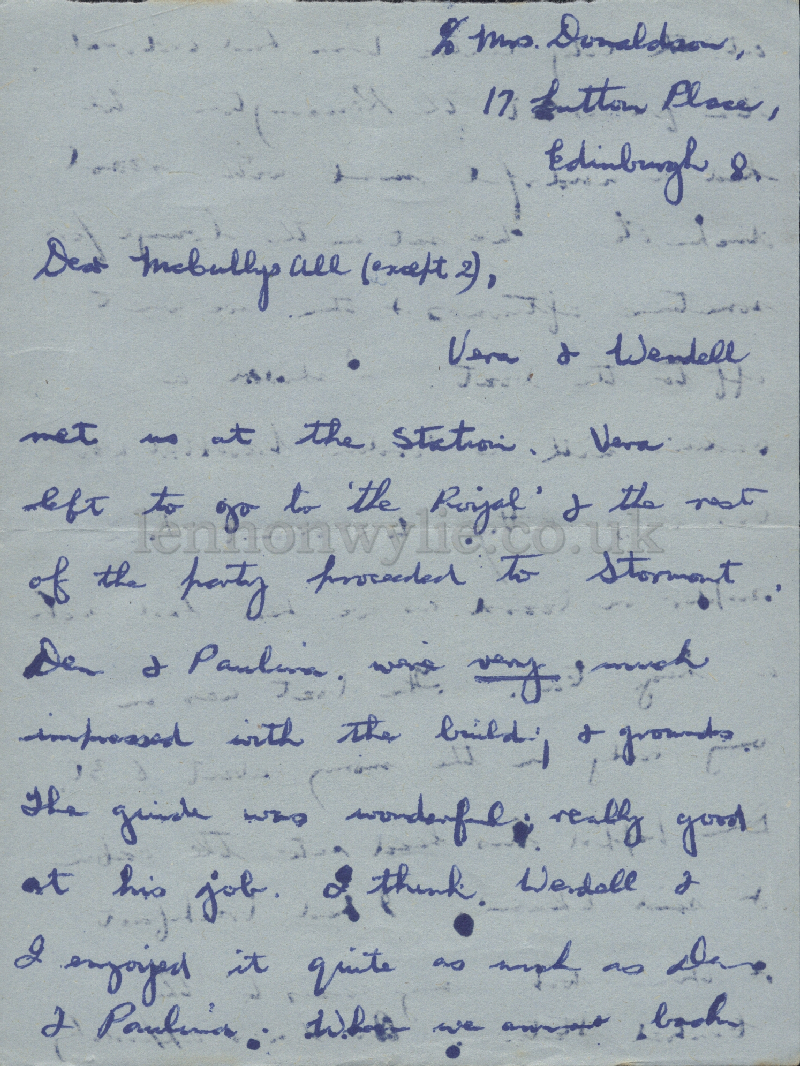 c/o Mrs. Donaldson,
17 Lutton Place,
Edinburgh 8.
Dear McCullys All (except 2),
Vera & Wendell
met us at the Station. Vera
left to go to 'the Royal' & the rest
of the party proceeded to Stormont.
Den & Paulina were very much
impressed with the build; & grounds.
The guide was wonderful; really good
at his job. I think Wendell &
I enjoyed it quite as much as Den
& Paulina. When we back
lennonwylie.co.uk